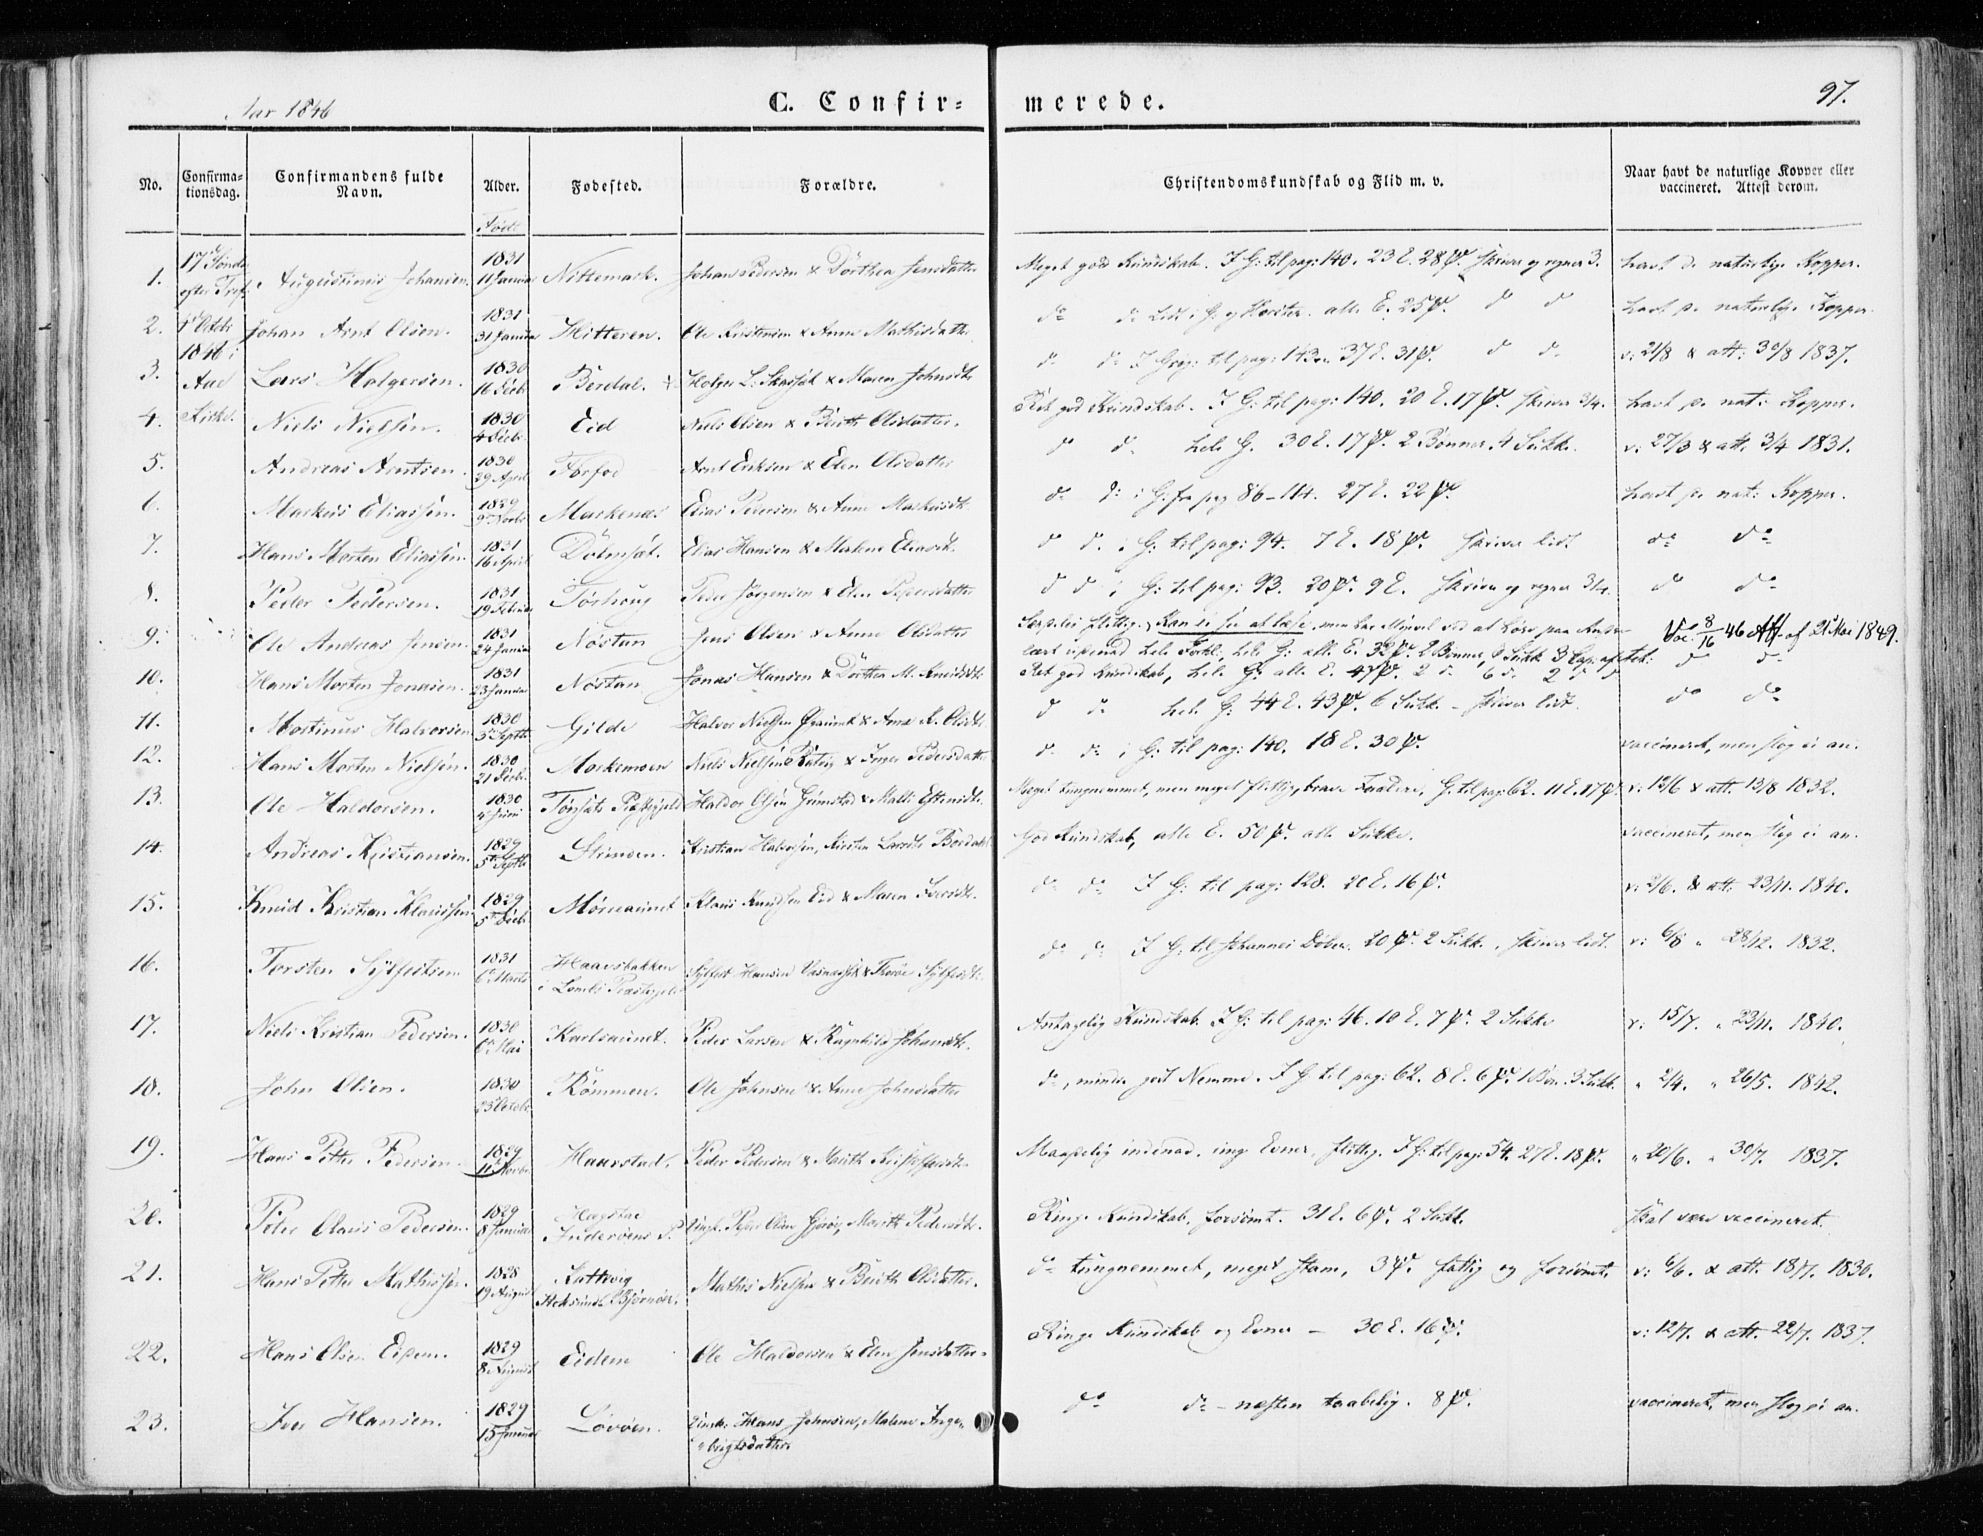 Aar 1846
C. Confir-
merede.
97.
No.
Confirma-
tionsdag.
Confirmandens fulde
Navn.
Alder.
Fødested.
Forældre.
Christendomskundskab og Flid m. v.
Naar havt de naturlige Kopper eller
vaccineret. Attest derom.
Født
17de Sønd.
efter Tref.
Octobr
1846 i
Aae
Kirke.
1. Augustinus Johansen. 1831 11 Januar Nittemark. Johan Pedersen & Dorthea Jensdatter Meget god Kundskab. I G: til pag: 140. 23 E. 28 Ps. skriver og regner 3. havt de naturlige Kopper.
2. Johan Arnt Olsen. 1831 31 Januar Hitteren. Ole Kristensen & Anne Mathisdatter do do alle E. 25 Ps. do do havt de naturlige Kopper.
3. Lars Holgersen. 1830 16 Decbr Berdal. Holger L: & Maren Johnsdtr do do til pag: 143. 37 E. 31 Ps. do do v: 21/8 & att: 30/8 1837.
4. Niels Nielsen. 1830 4 Decbr Eid Niels Olsen & Berith Olsdatter. Ret god Kundskab. I G: til pag: 140. 20 E. 17 Ps. skriver 3/4. havt de nat: Kopper.
5. Andreas Arntsen. 1830 29 April Forfod Arnt Eriksen & Elen Olsdatter do do hele G. 30 E. 17 Ps. 2 Bønner. 4 Stikke. v: 27/3 & att. 3/4 1831.
6. Markus Eliassen. 1829 9 Novbr Markenæs Elias Pedersen & Anne do do i G: fra pag 86-114. 27 E. 22 Ps. havt de nat: Kopper.
7. Hans Morten Eliassen. 1831 16 April Dolmsøt. Elias Hansen & Malene do do i G: til pag: 94. 7 E. 18 Ps. skriver lidt do do
8. Peder Pedersen. 1831 19 Februar Torhoug Peder Jørgensen & Elen do do i G: til pag: 93. 20 Ps. 9 E. skriver og regner 3/4. do do
9. Ole Andreas Jensen. 1831 24 Januar Nøstan Jens Olsen & Anne Olsdatter flittig, kan ei see at læse, men har ved at høre paa Andre
lært udenad hele Forkl., hele G: alle E. 32 Ps. 2 Bønner, 6 Stikke 3 Cap: af Vac. 8/16 46 Att. af 21 Mai 1849.
10. Hans Morten Jonasen. 1831 23 Januar Nøstan Jonas Hansen & Dorthea M. Ret god Kundskab, hele G: alle E. 47 Ps. 2 do 6 do 2 do do do
11. Martinus Halvorsen 1830 3 Septbr Gilde Halvor Nielsen & Ane K. Olsdtr do do hele G: 44 E. 43 Ps. 6 Stikke - skriver lidt. do do
12. Hans Morten Nielsen. 1830 21 Decbr Markemoen Niels Nielsen & Inger Pedersdatter do do i G: til pag: 140. 18 E. 30 Ps. vaccineret, men slog ei an.
13. Ole Haldorsen. 1830 4 Juni Tønsæts Præstegjeld Haldor Olsen Grimstad & Malti Estensdtr. Meget tungnemmet, men meget flittig, brave Forældre, G. til pag: 62. 11 E. 17 Ps. v: 12/6 & att. 13/8 1832.
14. Andreas Kristiansen. 1829 5te Septbr Strinden. Kristian Halvorsen, Kirsten Larsdtr God Kundskab, alle E. 50 Ps. alle Stikke. vaccineret, men slog ei an.
15. Knud Kristian Klausen. 1829 5te Decbr Mørreaunet Klaus Knudsen Eid & Maren Iversdtr. do do I G: til pag: 128. 20 E. 16 Ps. v: 2/6. & att. 23/11. 1840.
16. Torsten Sylfestsen 1831 6te Marts Haavsbakken
i Lomb's Præstegjeld Sylfest Hansen & Thorøe Sylfestdtr. do do I G: til Johannes Døber. 20 Ps. 2 Stikk. skriver lidt. v: 6/8 " 28/12. 1832.
17. Niels Kristian Pedersen. 1830 6te Mai Karlsaunet. Peder Larsen & Ragnhild Johansdtr. Antagelig Kundskab. I G: til pag: 46. 10 E. 7 Ps. 2 Stikke v: 15/7. " 23/11. 1840.
18. John Olsen. 1830 23 Octobr Rømmen. Ole Johnsen & Anne Johnsdatter do, mindre godt Nemme. I G. til pag: 62. 8 E. 6 Ps. 1 Bøn. 3 Stikk. " 2/4. " 26/5. 1842.
19. Hans Petter Pedersen. 1829 11te Novbr Haarstad. Peder Pedersen & Marith Maadelig indenad. ring Evner, flittig. I G: til pag: 54. 27 E. 18 Ps. " 20/6. " 30/7 1837.
20. Peter Claus Pedersen. 1829 8 Januar Hægstae
Inderøens P. Peder Olsen, Marith Pedersdtr. Ringe Kundskab, forsømt. 31 E. 6 Ps. 2 Stikk. skal være vaccineret.
21. Hans Petter Mathissen. 1828 19 August Kattevig
Stoksund Bjørnør. Mathis Nielsen & Berith Olsdatter. do tungnemmet, meget stam, 3 Ps. fattig og forsømt. v: 6/6. & att. 18/7. 1830.
22. Hans Olsen Eidem. 1829 8 August Eidem Ole Haldorsen & Elen Jensdatter. Ringe Kundskab og Evner - 30 E. 16 Ps. v: 12/7. & att. 22/7. 1837.
23. Iver Hansen. 1829 15 Januar Løvøen. Hans Johnsen, Malene Inge-
brigtsdatter. do do - næsten taabelig. 8 Ps. vaccineret, men slog ei an.